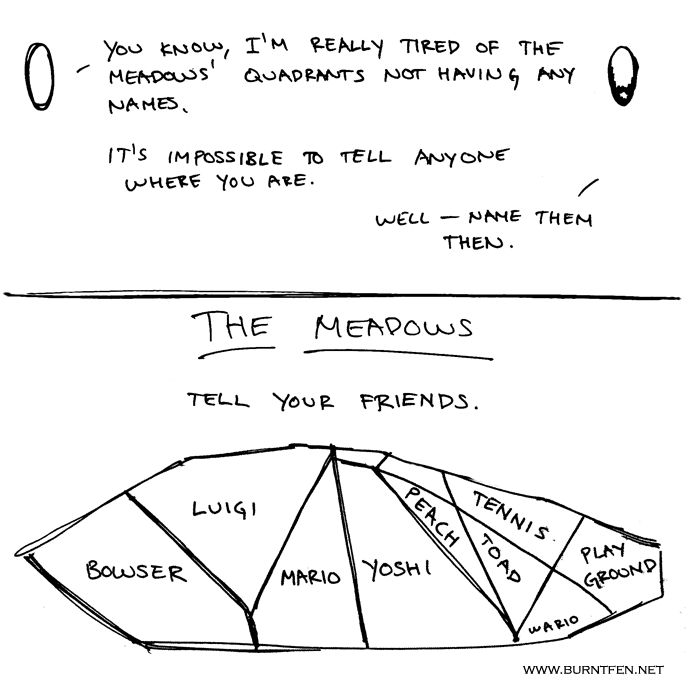 YOU KNOW, I'M REALLY TIRED OF THE
MEADOWS' QUADRANTS NOT HAVING ANY
NAMES.
IT'S IMPOSSIBLE TO TELL ANYONE
WHERE YOU ARE.
WELL — NAME THEM
THEN.
THE MEADOWS
TELL YOUR FRIENDS.
LUIGI
BOWSER
MARIO
YOSHI
PEACH
TOAD
TENNIS
PLAY
GROUND
WARIO
WWW.BURNTFEN.NET